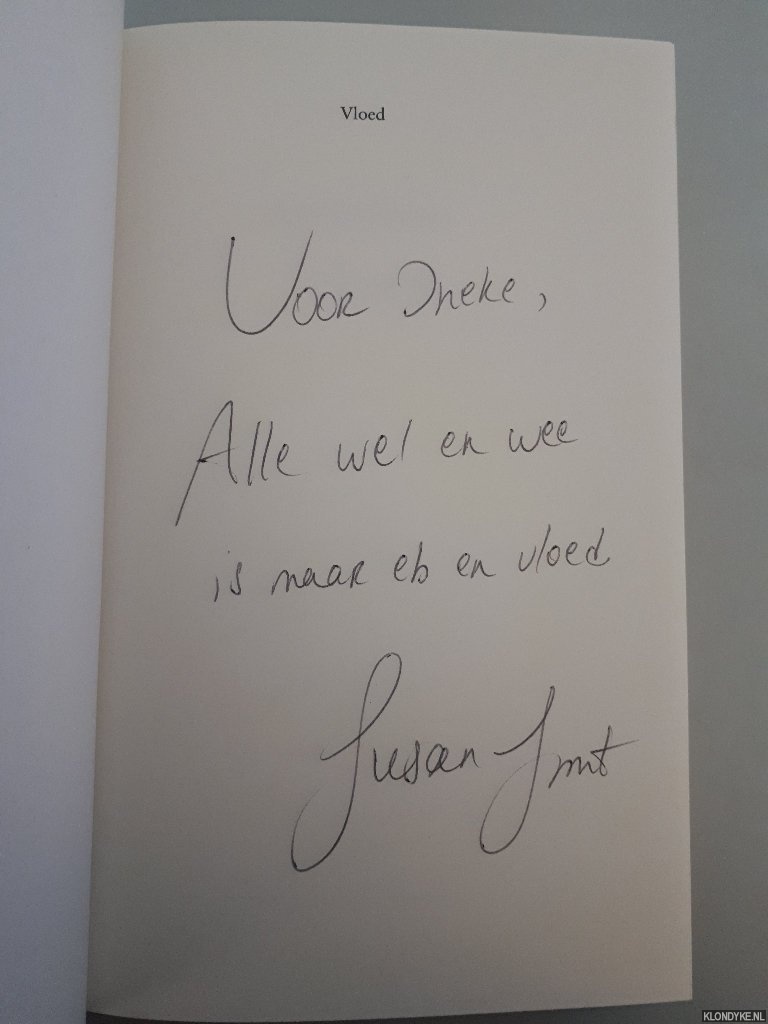 Vloed
Voor Ineke,
Alle wel en wee
is maar eb en vloed
Susan Smit
KLONDYKE.NL